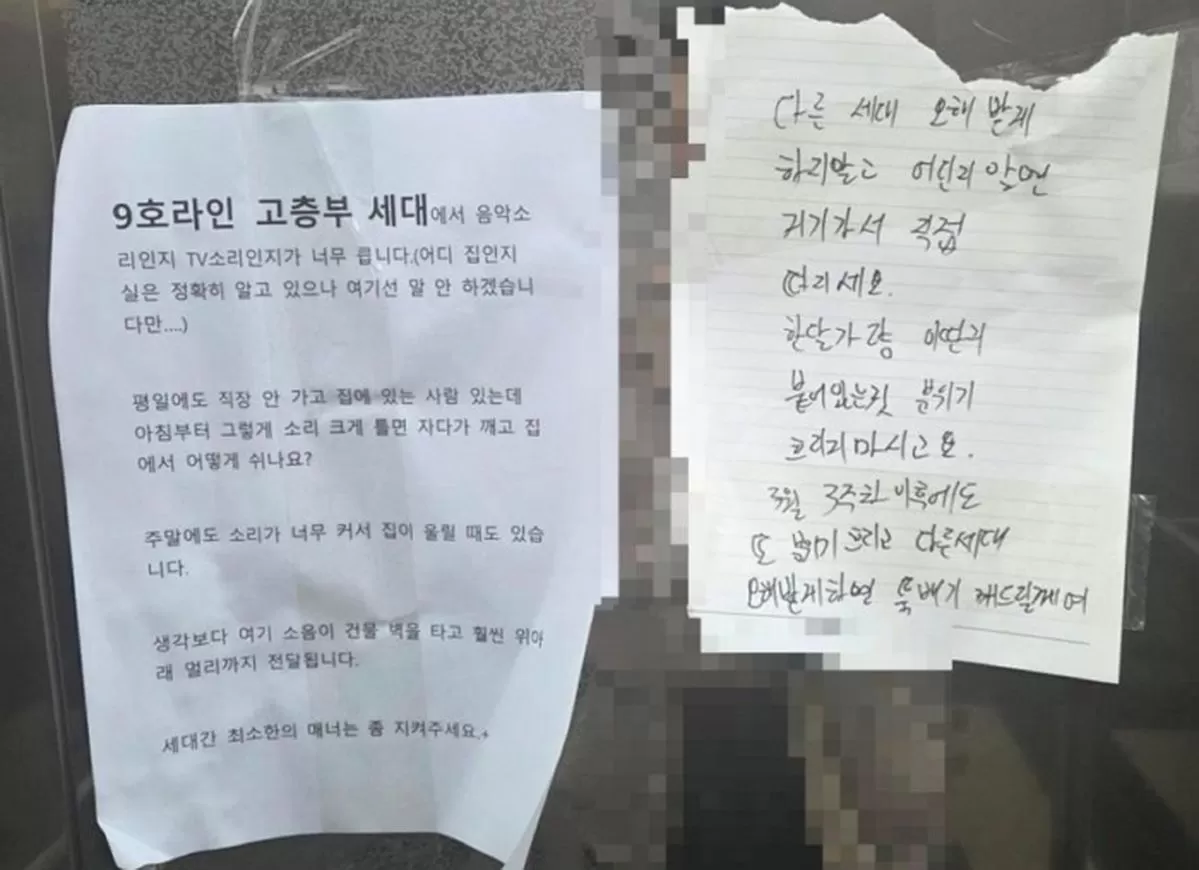 9호라인 고층부 세대에서 음악소
리인지 TV소리인지가 너무 큽니다.(어디 집인지
실은 정확히 알고 있으나 여기선 말 안 하겠습니
다만....)
평일에도 직장 안 가고 집에 있는 사람 있는데
아침부터 그렇게 소리 크게 틀면 자다가 깨고 집
에서 어떻게 쉬나요?
주말에도 소리가 너무 커서 집이 울릴 때도 있습
니다.
생각보다 여기 소음이 건물 벽을 타고 훨씬 위아
래 멀리까지 전달됩니다.
세대간 최소한의 매너는 좀 지켜주세요.
다른 세대 오해 받게
하지말고 어딘지 알면
직접
한달가량 이딴거
붙어있는것 분위기
흐리지마시고요.
3월 3주차 이후에도
또 흐리고 다른세대
오해받게하면 뚝배기 깨드릴게여